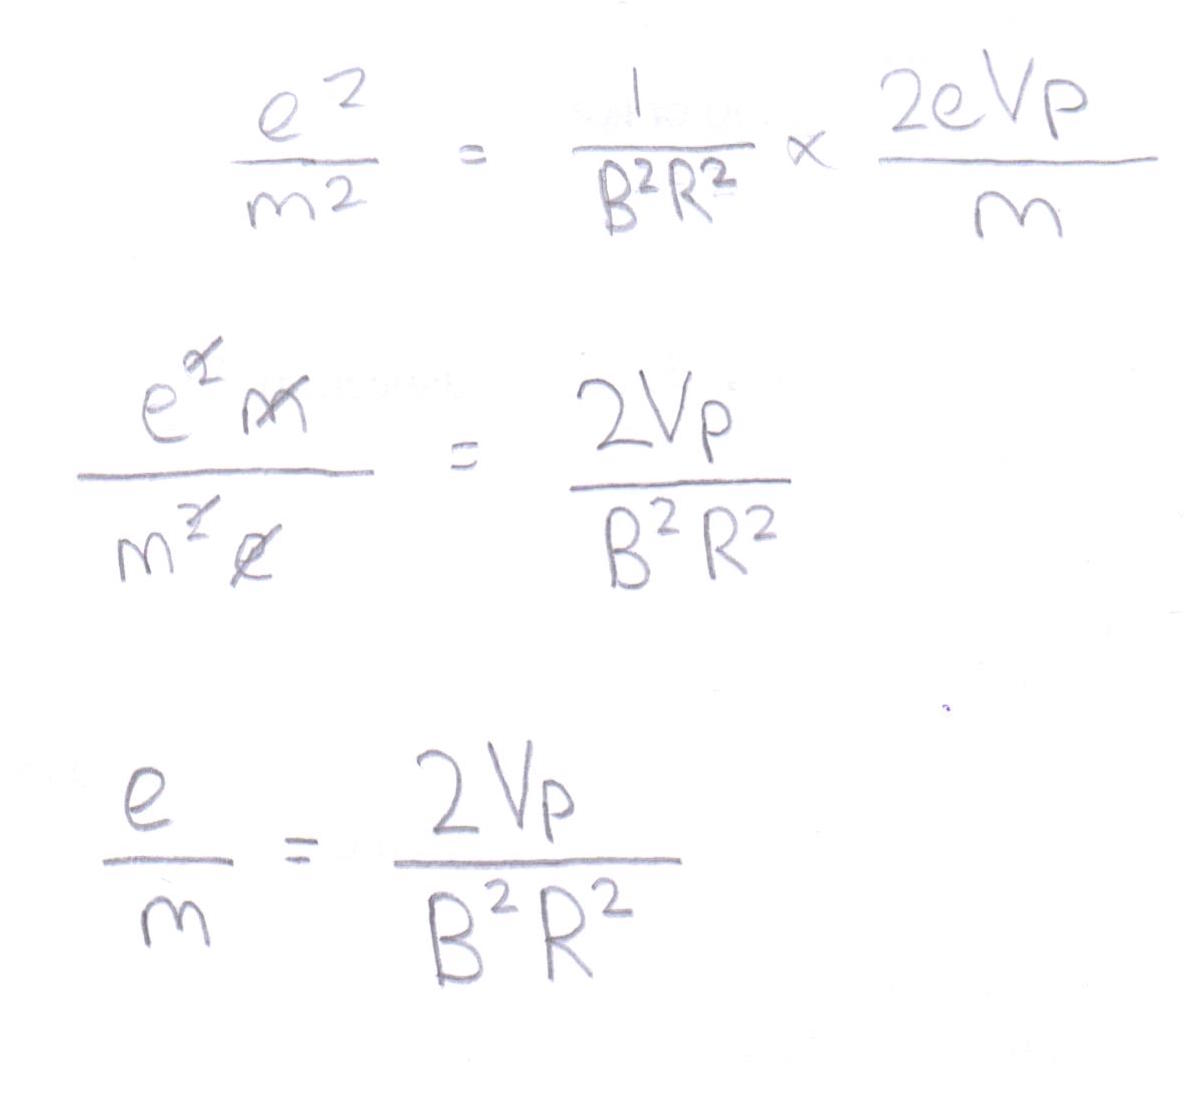 e²/m² = 1/B²R² × 2eVp/m
e²m/m²e = 2Vp/B²R²
e/m = 2Vp/B²R²